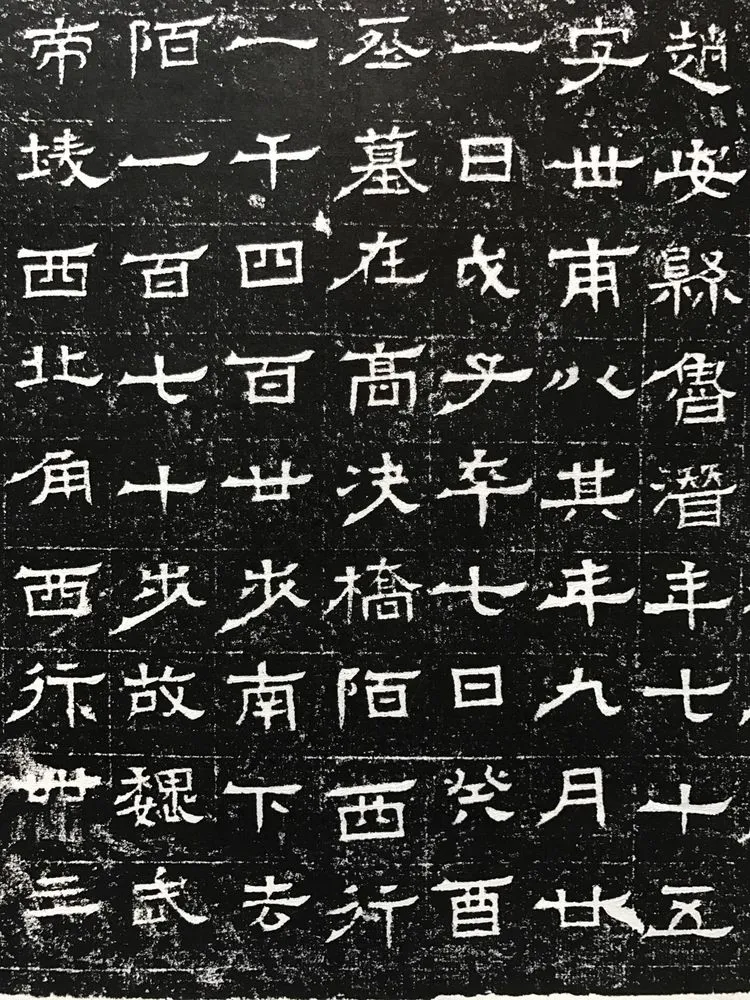 趙安縣魯潛年七十五
字世甫以其年九月廿
一日戊子卒七日癸酉
葬墓在高決橋陌西行
一千四百廿步南下去
陌一百七十步故魏武
帝陵西北角西行卌三